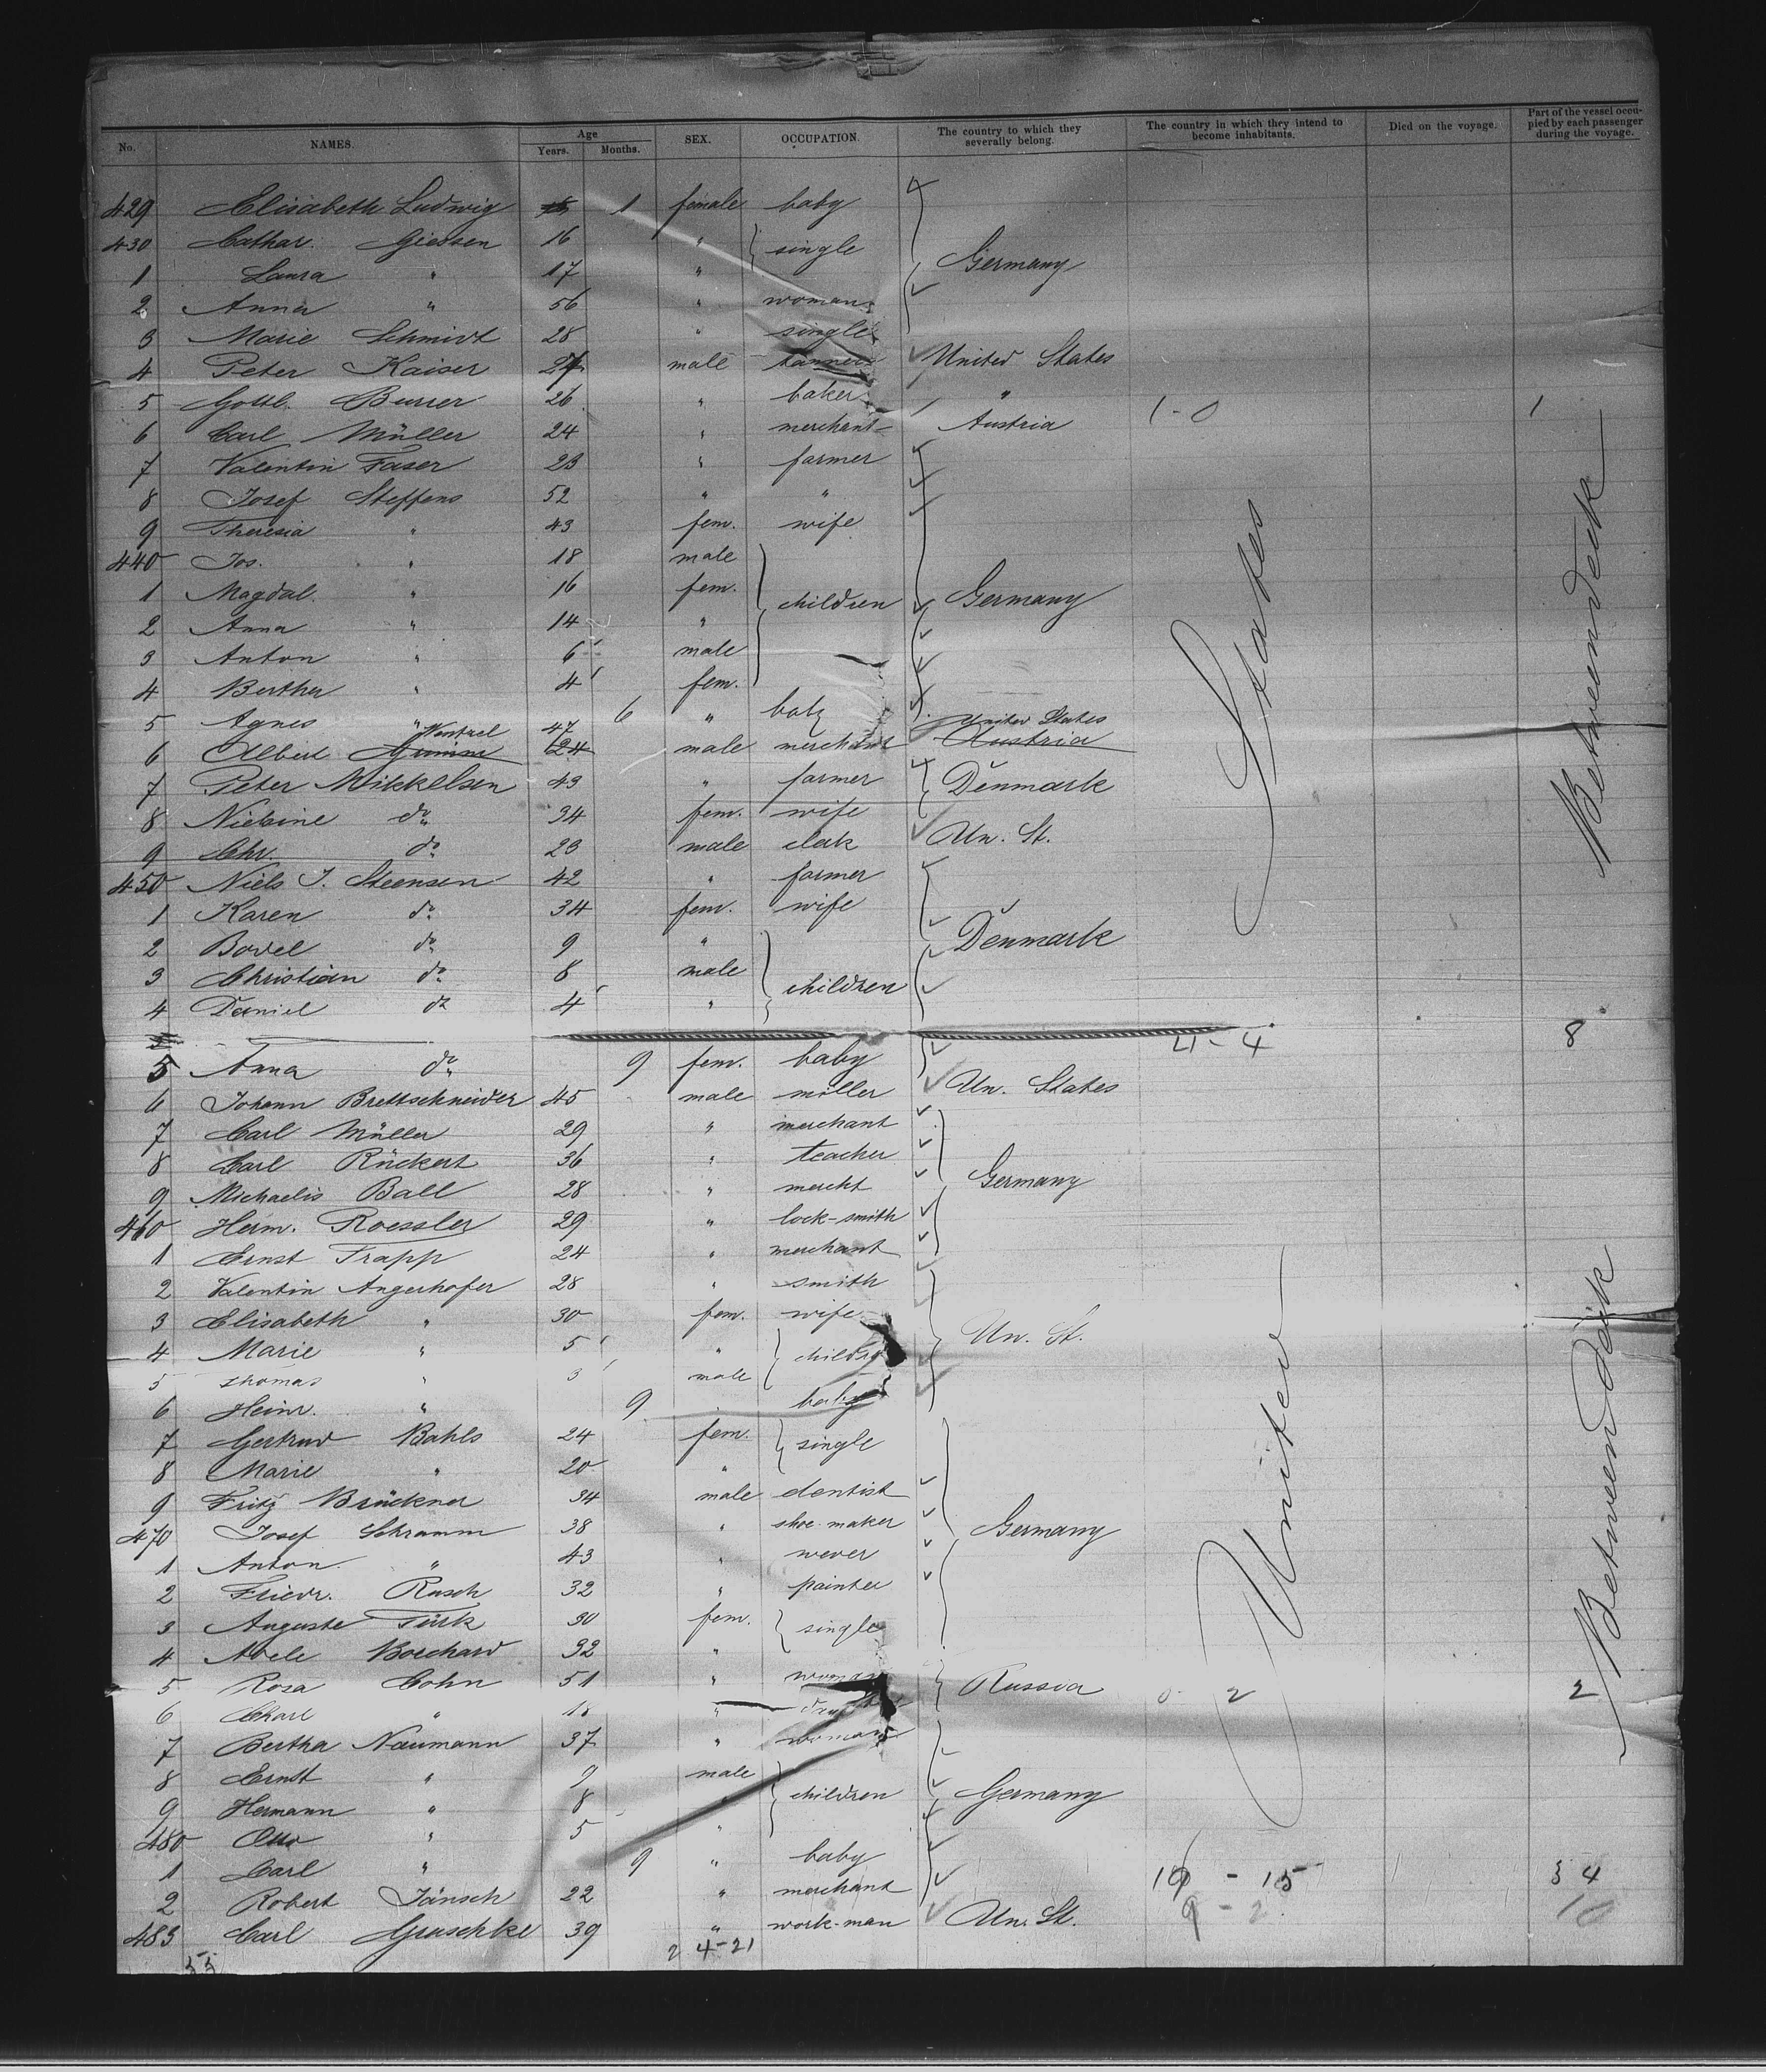 No. NAMES. Age Years. Months. SEX. OCCUPATION. The country to which they severally belong. The country in which they intend to become inhabitants. Died on the voyage. Part of the vessel occupied by each passenger during the voyage.
429 Elisabeth Ludwig 1 female baby
430 Cathar. Giessen 16 " single
1 Laura " 17 " Germany
2 Anna " 56 " woman
3 Marie Schmidt 28 " single
4 Peter Kaiser 27 male tanner United States
5 Gottl. Burrer 26 " baker " 1-0 1
6 Carl Müller 24 " merchant Austria
7 Valentin Faser 23 " farmer
8 Josef Steffens 52 " "
9 Theresia " 43 fem. wife
440 Jos. " 18 male
1 Magdal. " 16 fem. children Germany
2 Anna " 14 "
3 Anton " 6 male
4 Bertha " 4 fem.
5 Agnes " 6 " baby
6 Albert Wentzel 47 24 male merchant United States Austria
7 Peter Mikkelsen 43 " farmer Denmark
8 Nielsine do 34 fem. wife
9 Chr. do 23 male clerk Un. St.
450 Niels J. Steensen 42 " farmer
1 Karen do 34 fem. wife
2 Bodel do 9 " Denmark
3 Christian do 8 male children
4 Daniel do 4 "
5 Anna do 9 fem. baby 21-4 8
6 Johann Brettschneider 45 male möller Un. States
7 Carl Müller 29 " merchant
8 Carl Rückert 36 " teacher
9 Michaelis Ball 28 " mercht Germany
460 Herm. Roessler 29 " lock-smith
1 Ernst Trapp 24 " merchant
2 Valentin Angerhofer 28 " smith
3 Elisabeth " 30 fem. wife Un. St.
4 Marie " 5 " children
5 Thomas " 3 male
6 Heinr. " 9 baby
7 Gertrud Bahls 24 fem. single
8 Marie " 20 "
9 Fritz Brückner 34 male dentist
470 Josef Schramm 38 " shoe-maker Germany
1 Anton " 43 " wever
2 Friedr. Rasch 32 " painter
3 Auguste Türk 30 fem. single
4 Adele Borchard 32 "
5 Rosa Cohn 51 " woman Russia 0 2 2
6 Charl " 18 "
7 Bertha Naumann 37 " woman
8 Ernst " 9 male
9 Hermann " 8 " children Germany
480 Otto " 5 "
1 Carl " 9 " baby
2 Robert Jänsch 22 " merchant - 15 4
483 Carl Gruschke 39 " work-man Un. St. 9 - 2 10
2 4-21
55
United States
Betweendeck
Betweendeck